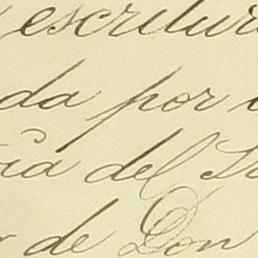 escritur
da por
cia del
de Don